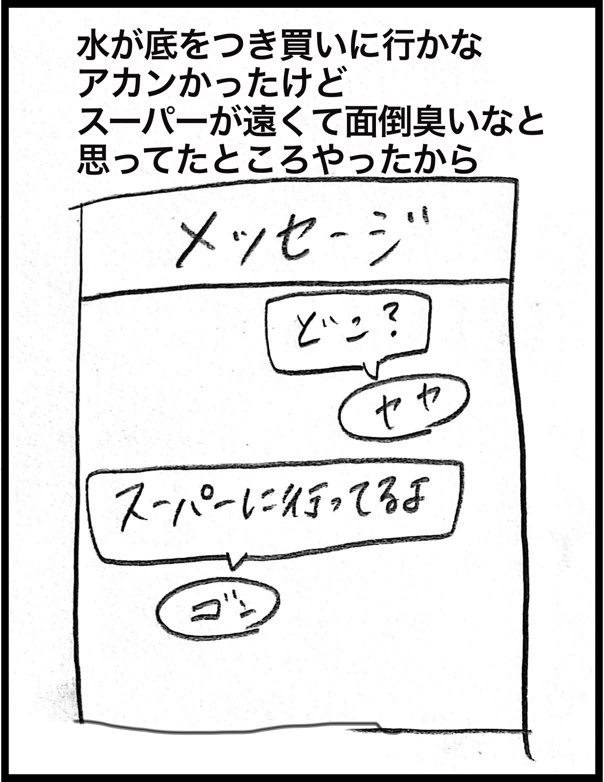 水が底をつき買いに行かな
アカンかったけど
スーパーが遠くて面倒臭いなと
思ってたところやったから
メッセージ
どこ?
ヤヤ
スーパーに行ってるよ
ゴン